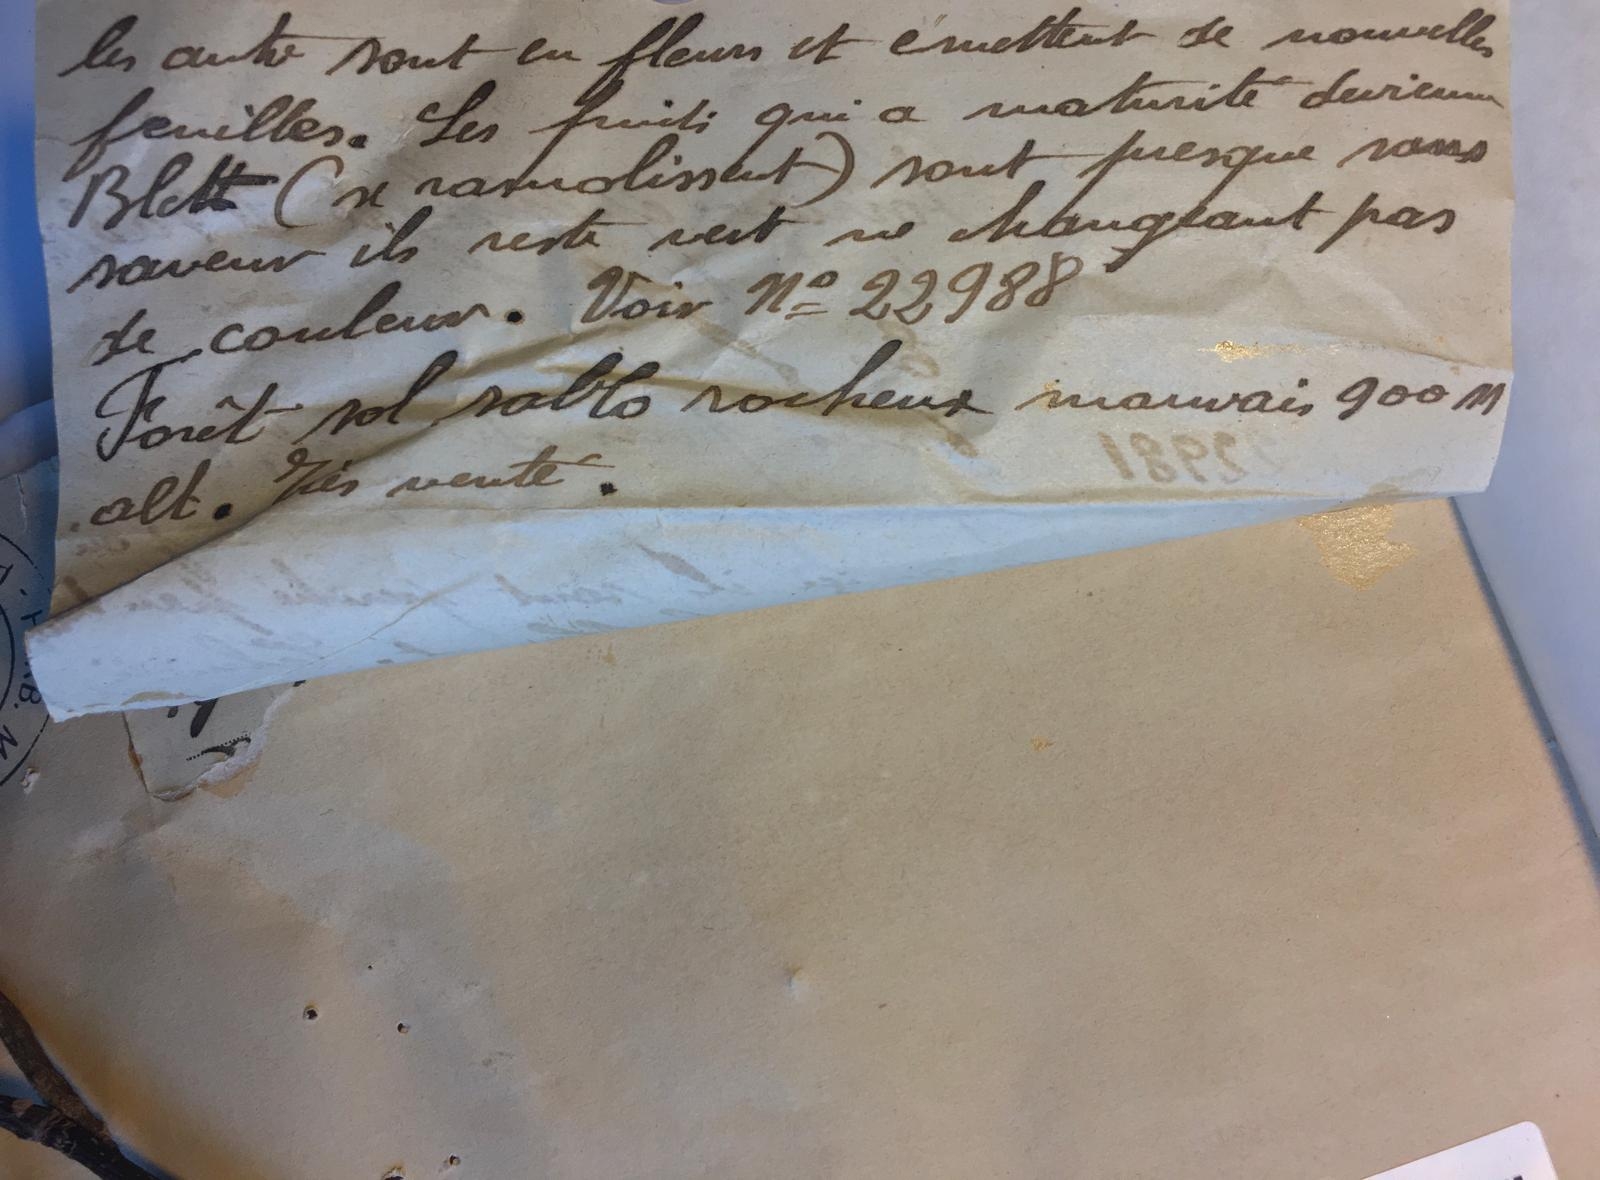 les autre sont en fleurs et émettent de nouvelles
feuilles. Les fruits qui a maturité devienn
Blett (se ramolissent) sont presque sans
saveur ils reste vert ne changeant pas
de couleur. Voir Nº 22988
Forêt sol sablo rocheux mauvais 900 M
alt. Très venté.
22981